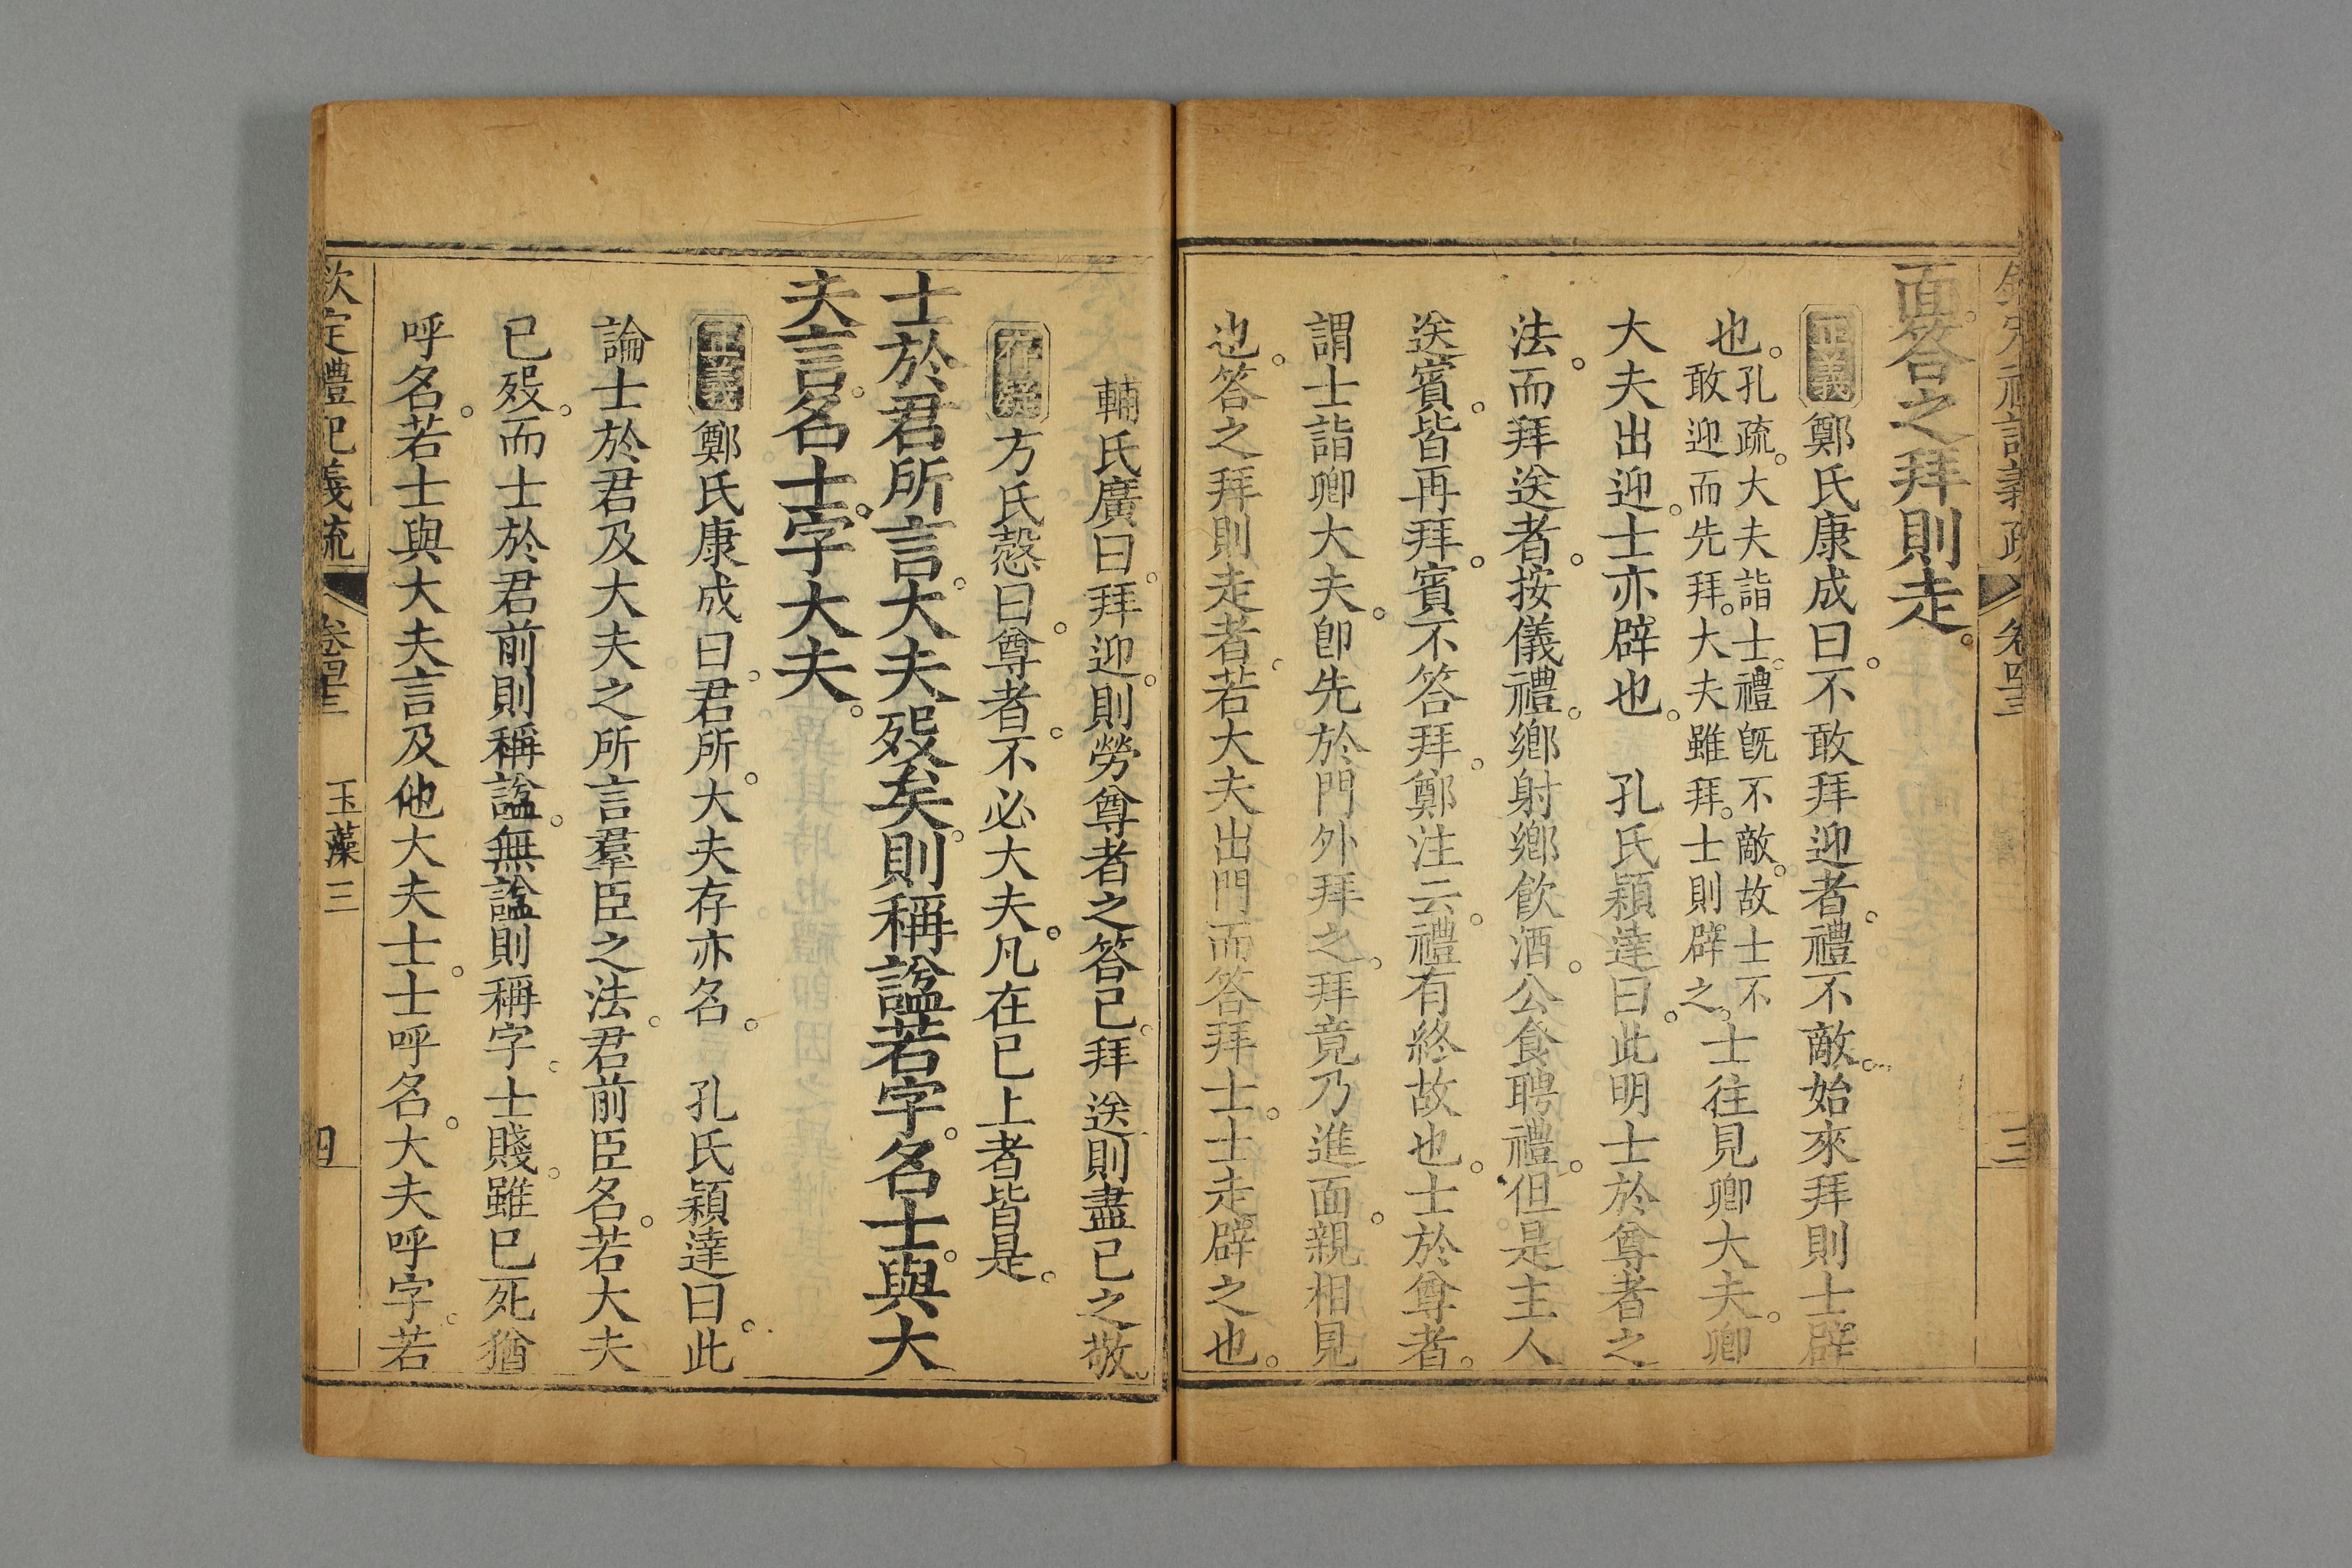 欽定禮記義疏 卷四十三 三
面答之拜則走
正義 鄭氏康成曰不敢拜迎者禮不敵始來拜則士辟
也孔疏大夫詣士禮旣不敵故士不
敢迎而先拜大夫雖拜士則辟之士往見卿大夫卿
大夫出迎士亦辟也 孔氏穎達曰此明士於尊者之
法而拜送者按儀禮鄉射鄉飮酒公食聘禮但是主人
送賓皆再拜賓不答拜鄭注云禮有終故也士於尊者
謂士詣卿大夫卽先於門外拜之拜竟乃進面親相見
也答之拜則走者若大夫出門而答拜士士走辟之也
輔氏廣曰拜迎則勞尊者之答己拜送則盡己之敬
存疑 方氏慤曰尊者不必大夫凡在已上者皆是
士於君所言大夫歿矣則稱諡若字名士與大
夫言名士字大夫
正義 鄭氏康成曰君所大夫存亦名 孔氏穎達曰此
論士於君及大夫之所言羣臣之法君前臣名若大夫
已歿而士於君前則稱諡無諡則稱字士賤雖已死猶
呼名若士與大夫言及他大夫士士呼名大夫呼字若
欽定禮記義疏 卷四十三 玉藻三 四